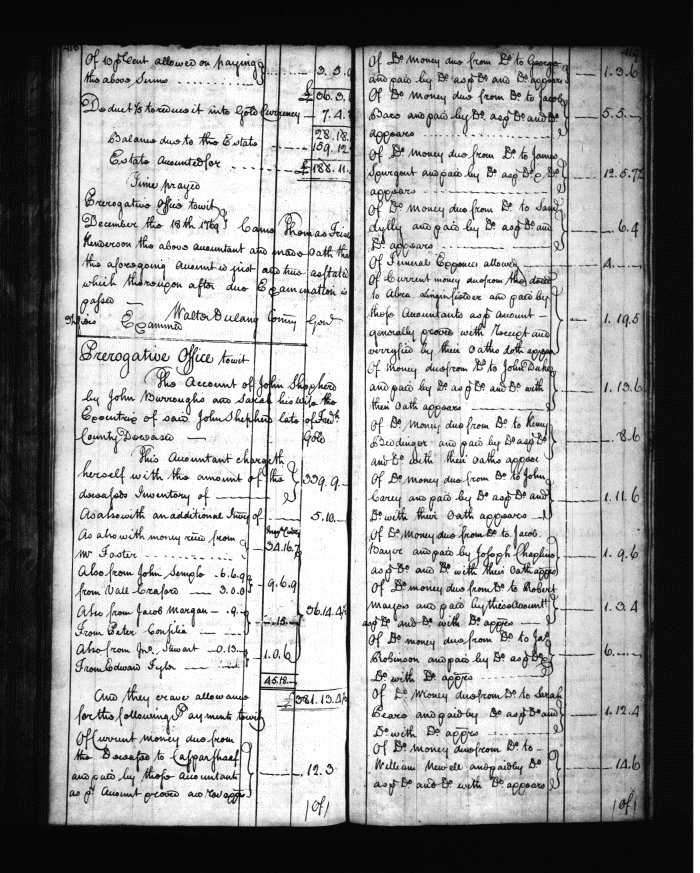 416
Of 10 p Cent allowed on paying
the above Sums 3.5.0
£36.3.
Deduct ⅕ to reduce it into Gold Currency 7.4.
28.18.
Balance due to the Estate 159.12
Estate Accounted for £188.11.
Time prayed
Prerogative Office towit
December the 18th 1769 } Came Thomas
Henderson the above accountant and made Oath that
the aforegoing Account is just and true as stated
which thereupon after due Examination is
passed —
Walter Dulany Comry Genl
Examined
Prerogative Office towit
The Account of John Shepherd
by John Burroughs and Sarah his Wife the
Executrix of said John Shepherd late of Fredk
County Deceased — Gold
This Accountant chargeth
herself with the amount of the } 339.9.
deceaseds Inventory of
As also with an additional Invy of 5.10.
As also with money recd from
Mr Foster 34.16.7
Also from John Semple 6.6.9
from Vall Craford 3.0.0 } 9.6.9
Also from Jacob Morgan .9. } 36.14.4½
From Peter .15.
Also from Jno. Stewart 0.13. } 1.0.6
From Edward Tylor
45.18.
£381.13.4½
And they crave allowance
for the following Payments towit
Of Current money due from
the Deceased to
and paid by these Accountants } 12.3
as pr Account proved and Rect apprs
416
Of Do Money due from Do to George
and paid by Do as p Do and Do appears 1.3.6
Of Do money due from Do to Jacob
Bare and paid by Do as p Do and Do } 5.5.
appears
Of Do Money due from Do to James
Spurgent and paid by Do as p Do & Do } 12.5.7½
appears
Of Do Money due from Do to Saml
and paid by Do as p Do and } 6.4
Do appears
Of Funeral Expences allowed 4.
Of Current money due from the decd
to Abra. Lingenfielder and paid by
these Accountants as p Account — } 1.19.5
generally proved with Receipt and
verryfied by their Oaths doth appear
Of Money due from Do to John
and paid by Do as p Do and Do with } 1.13.6
their Oath appears
Of Do Money due from Do to Henry
and paid by Do as p Do } .8.6
and Do with their Oaths appear
Of Do Money due from Do to John
Carey and paid by Do as p Do and } 1.11.6
Do with their Oath appears
Of Do Money due from Do to Jacob
Bayer and paid by Joseph Chapline } 1.9.6
as p Do and Do with their Oath apprs
Of Do Money due from Do to Robert
and paid by these Account } 1.3.4
as p Do and Do with Do apprs
Of Do money due from Do to Jas
Robinson and paid by Do as p Do } 6.
Do with Do apprs
Of Do Money due from Do to Sarah
Beare and paid by Do as p Do and } 1.12.4
Do with Do apprs
Of Do Money due from Do to
William Newell and paid by Do } .14.6
as p Do and Do with Do appears